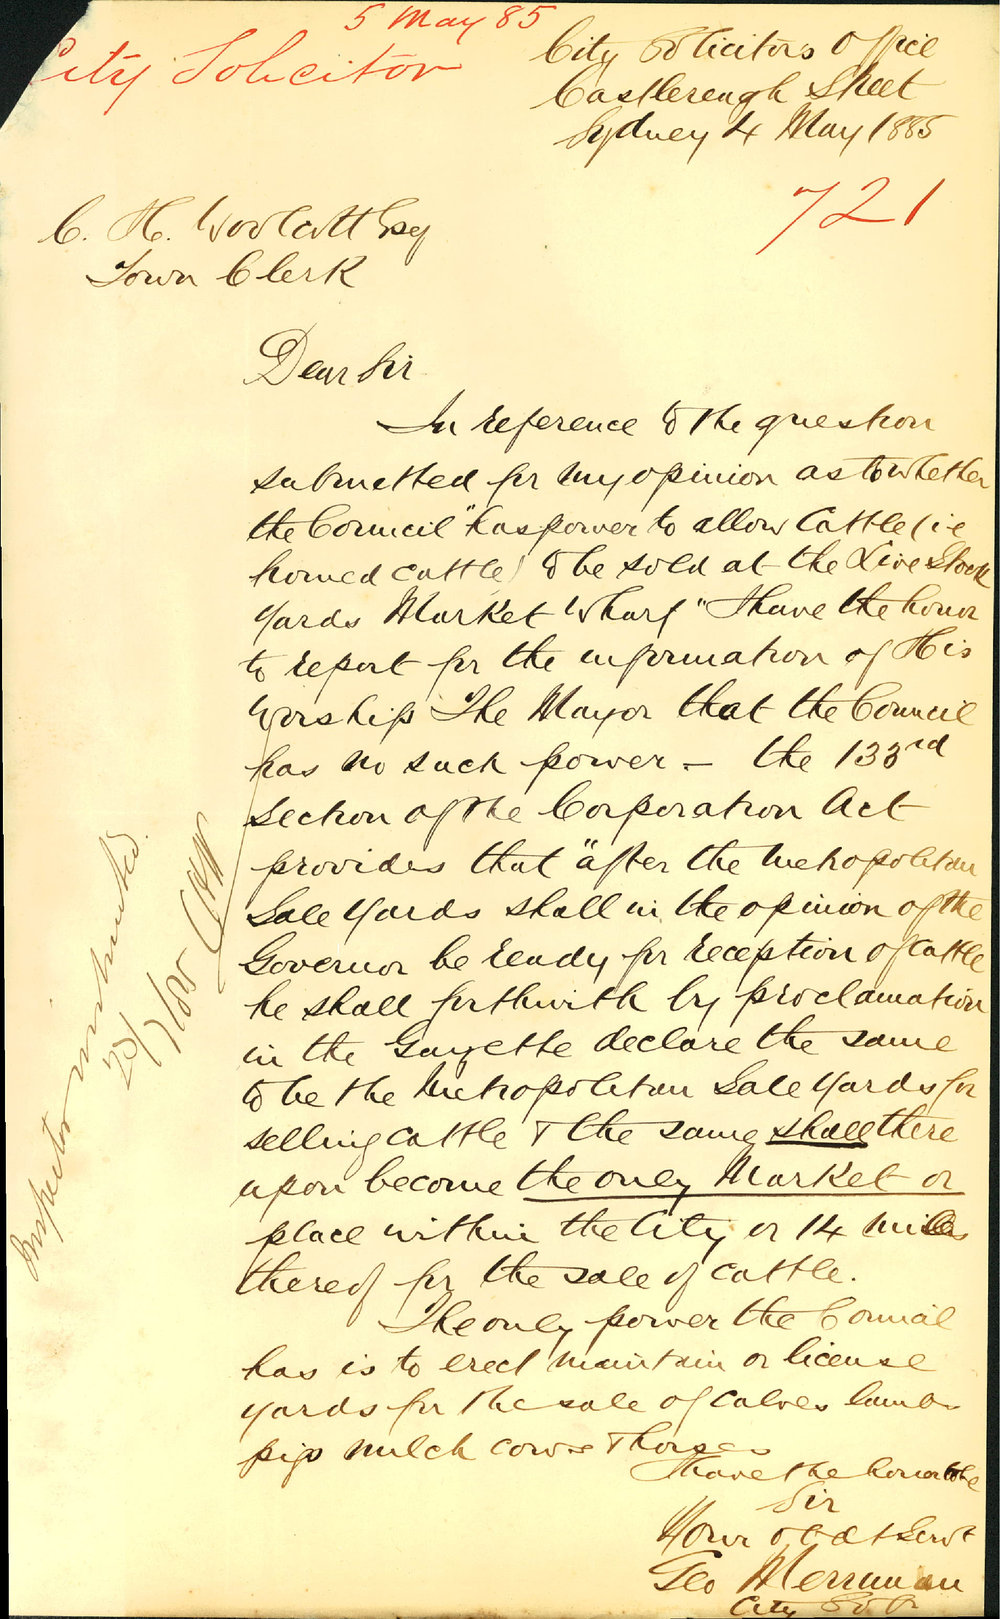 5 May 85
City Solicitor
City Solicitors Office
Castlereagh Street
Sydney 4 May 1885
721
C. H. Woolcott Esq
Town Clerk
Dear Sir
In reference to the question
submitted for my opinion as to whether
the Council "has power to allow Cattle (ie
horned cattle) to be sold at the Live Stock
Yards Market Wharf" I have the honor
to report for the information of His
Worship The Mayor that the Council
has no such power – the 133rd
Section of the Corporation Act
provides that "after the Metropolitan
Sale Yards shall in the opinion of the
Governor be ready for reception of Cattle
he shall forthwith by proclamation
in the Gazette declare the same
to be the Metropolitan Sale Yards for
selling cattle & the same shall there
upon become the only Market or
place within the City or 14 miles
thereof for the sale of cattle.
The only power the Council
has is to erect maintain or license
yards for the sale of calves lambs
pigs milch cows & horses
I have the honor to be
Sir
Your obdt Servt
Geo Merriman
City Solr
Inspector instructed.
CHW